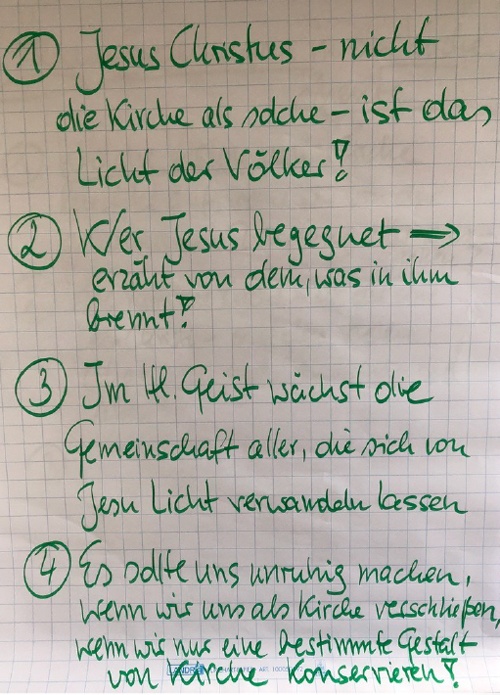 1 Jesus Christus – nicht
die Kirche als solche – ist das
Licht der Völker!
2 Wer Jesus begegnet ⇒
erzäht von dem, was in ihm
brennt!
3 Im Hl. Geist wächst die
Gemeinschaft aller, die sich von
Jesu Licht verwandeln lassen
4 Es sollte uns unruhig machen,
wenn wir uns als Kirche verschließen,
wenn wir nur eine bestimmte Gestalt
von Kirche konservieren!
LANDRÉ